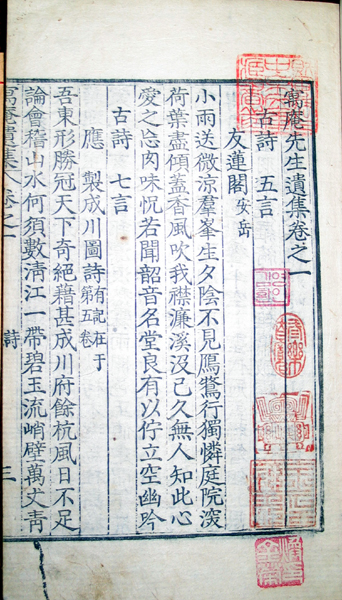 寓庵先生遺集卷之一
古詩 五言
友蓮閣安岳
小雨送微涼羣峯生夕陰不見鴈鶩行獨憐庭院深
荷葉盡傾蓋香風吹我襟濂溪沒已久無人知此心
愛之忘肉味怳若聞韶音名堂良有以佇立空幽吟
古詩 七言
應 製成川圖詩有記在于第五卷
吾東形勝冠天下奇絕藉甚成川府餘杭風日不足
論會稽山水何須數淸江一帶碧玉流峭壁萬丈靑
寓庵遺集 卷之一 詩 三